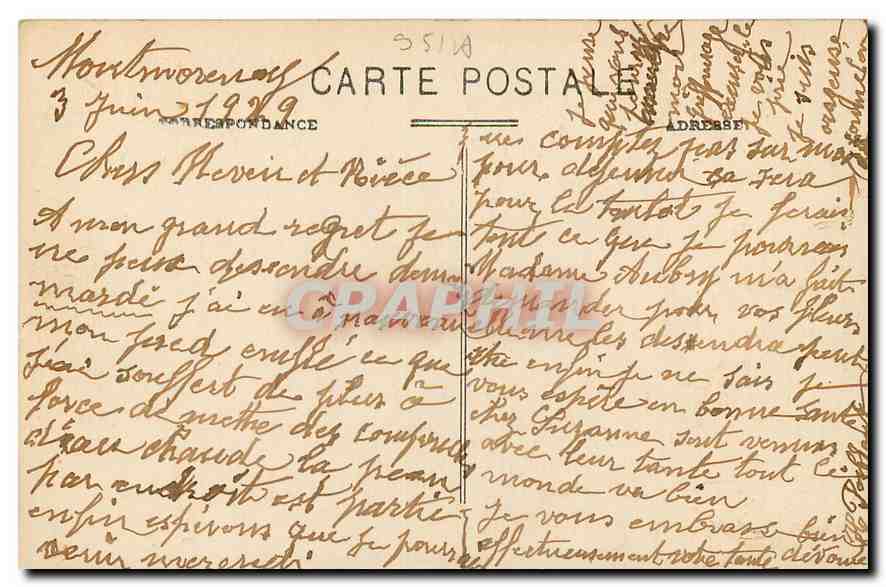 951A
Montmorency
CARTE POSTALE
3 Juin 1929
CORRESPONDANCE
ADRESSE
Chers Neveu et Nièce
A mon grand regret je
ne peux dessendre
mardi j'ai eu à nouveau
mon pied enfflé ce que
j'ai souffert de plus à
force de mettre des
d'eau chaude la peau
par endroit est partie
enfin espérons que je pourrai
venir mercredi
ne comptez pas sur moi
pour dejeuner ça sera
pour la tantot je ferai
tout ce que je pourrai
Madame Aubry m'a fait
demander pour vos fleurs
les dessendra peut
etre enfin je ne sais je
vous espère en bonne santé
chez Suzanne sont venus
avec leur tante tout le
monde va bien
je vous embrasse bien
affectueusement votre tante dévouée
je vous
prie
je suis
GRAPHIL